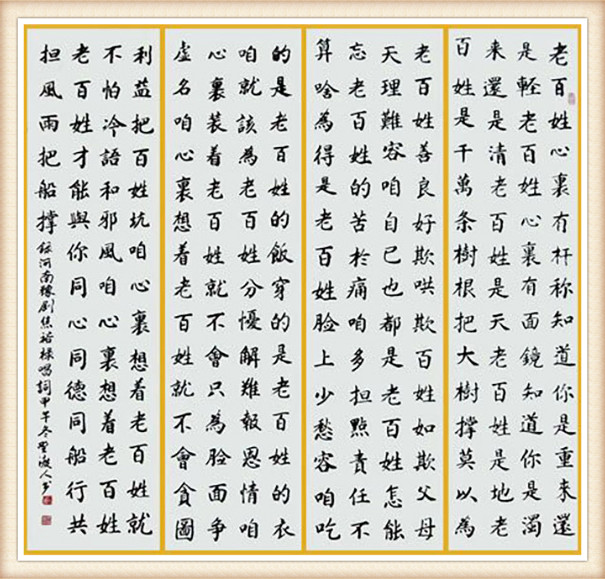 老百姓心裏有杆称知道你是重来還
是輕老百姓心裏有面鏡知道你是濁
来還是清老百姓是天老百姓是地老
百姓是千萬条樹根把大樹撑莫以為
老百姓善良好欺哄欺百姓如欺父母
天理難容咱自己也都是老百姓怎能
忘老百姓的苦於痛咱多担點責任不
算啥為得是老百姓臉上少愁容咱吃
的是老百姓的飯穿的是老百姓的衣
咱就該為老百姓分憂解難報恩情咱
心裏装着老百姓就不會只為臉面争
虚名咱心裏想着老百姓就不會貪圖
利益把百姓坑咱心裏想着老百姓就
不怕冷語和邪風咱心裏想着老百姓
老百姓才能與你同心同德同船行共
担風雨把船撑
録河南豫劇焦裕禄唱詞甲午冬